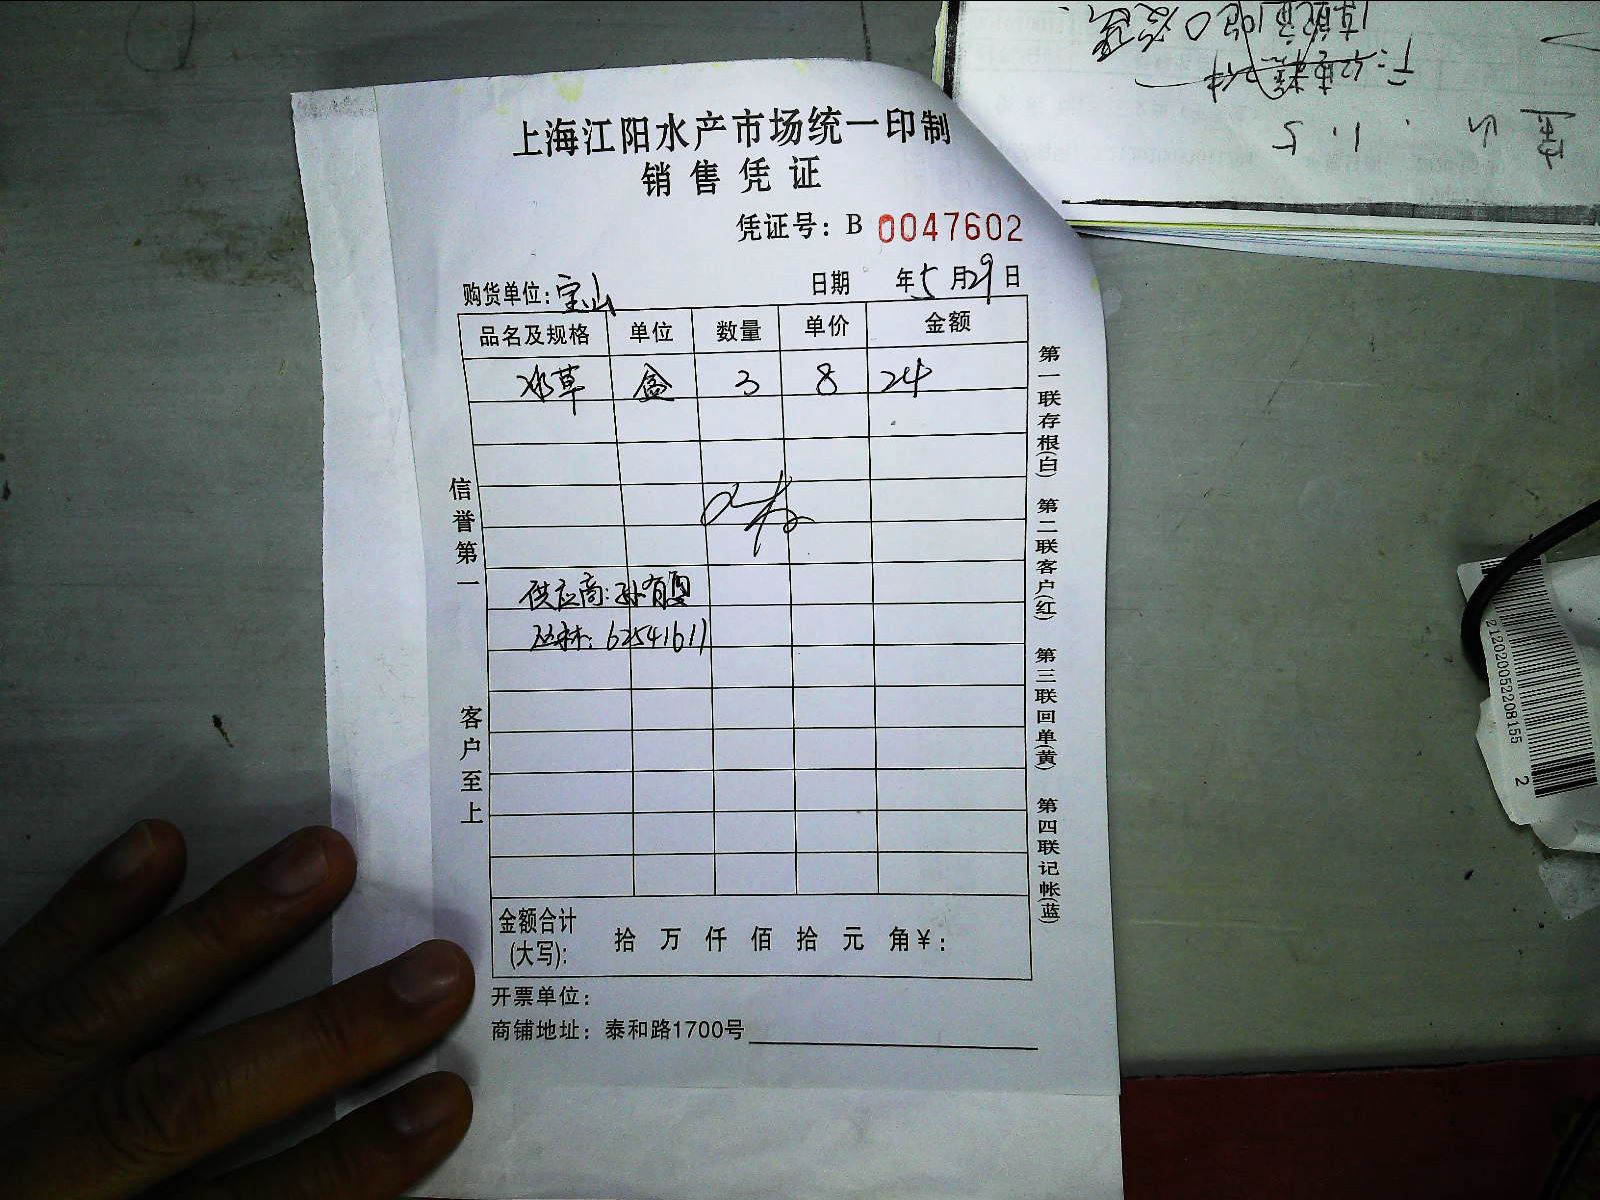 上海江阳水产市场统一印制
销售凭证
凭证号：B 0047602
购货单位：宝山 日期 年5月29日
品名及规格 单位 数量 单价 金额
水草 盒 3 8 24
供应商：孙有
62541611
信誉第一
客户至上
第一联存根(白) 第二联客户(红) 第三联回单(黄) 第四联记帐(蓝)
金额合计
(大写)： 拾 万 仟 佰 拾 元 角￥：
开票单位：
商铺地址：泰和路1700号
212020052208155
2